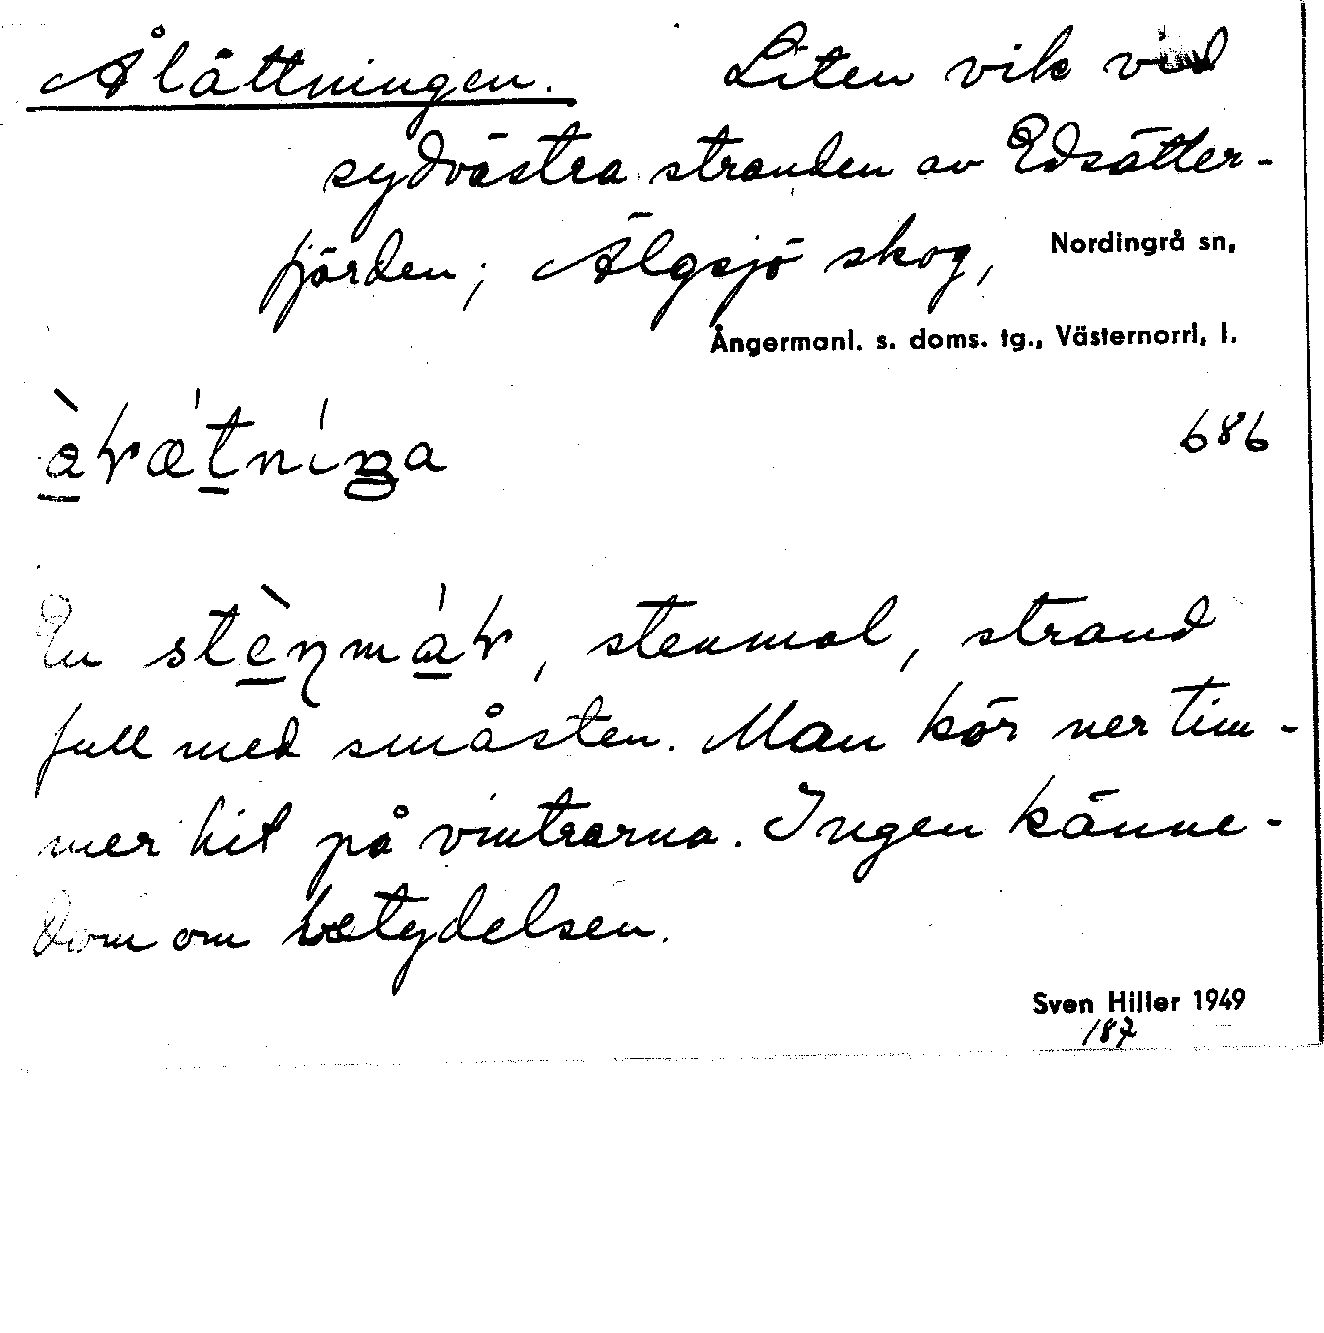 Ålättningen. Liten vik vid
sydvästra stranden av Edsätter-
fjärden; Älgsjö skog, Nordingrå sn,
Ångermanl. s. doms. tg., Västernorrl. l.
686
En stenmal, strand
full med småsten. Man kör ner tim-
mer hit på vintrarna. Ingen känne-
dom om betydelsen.
Sven Hiller 1949
187